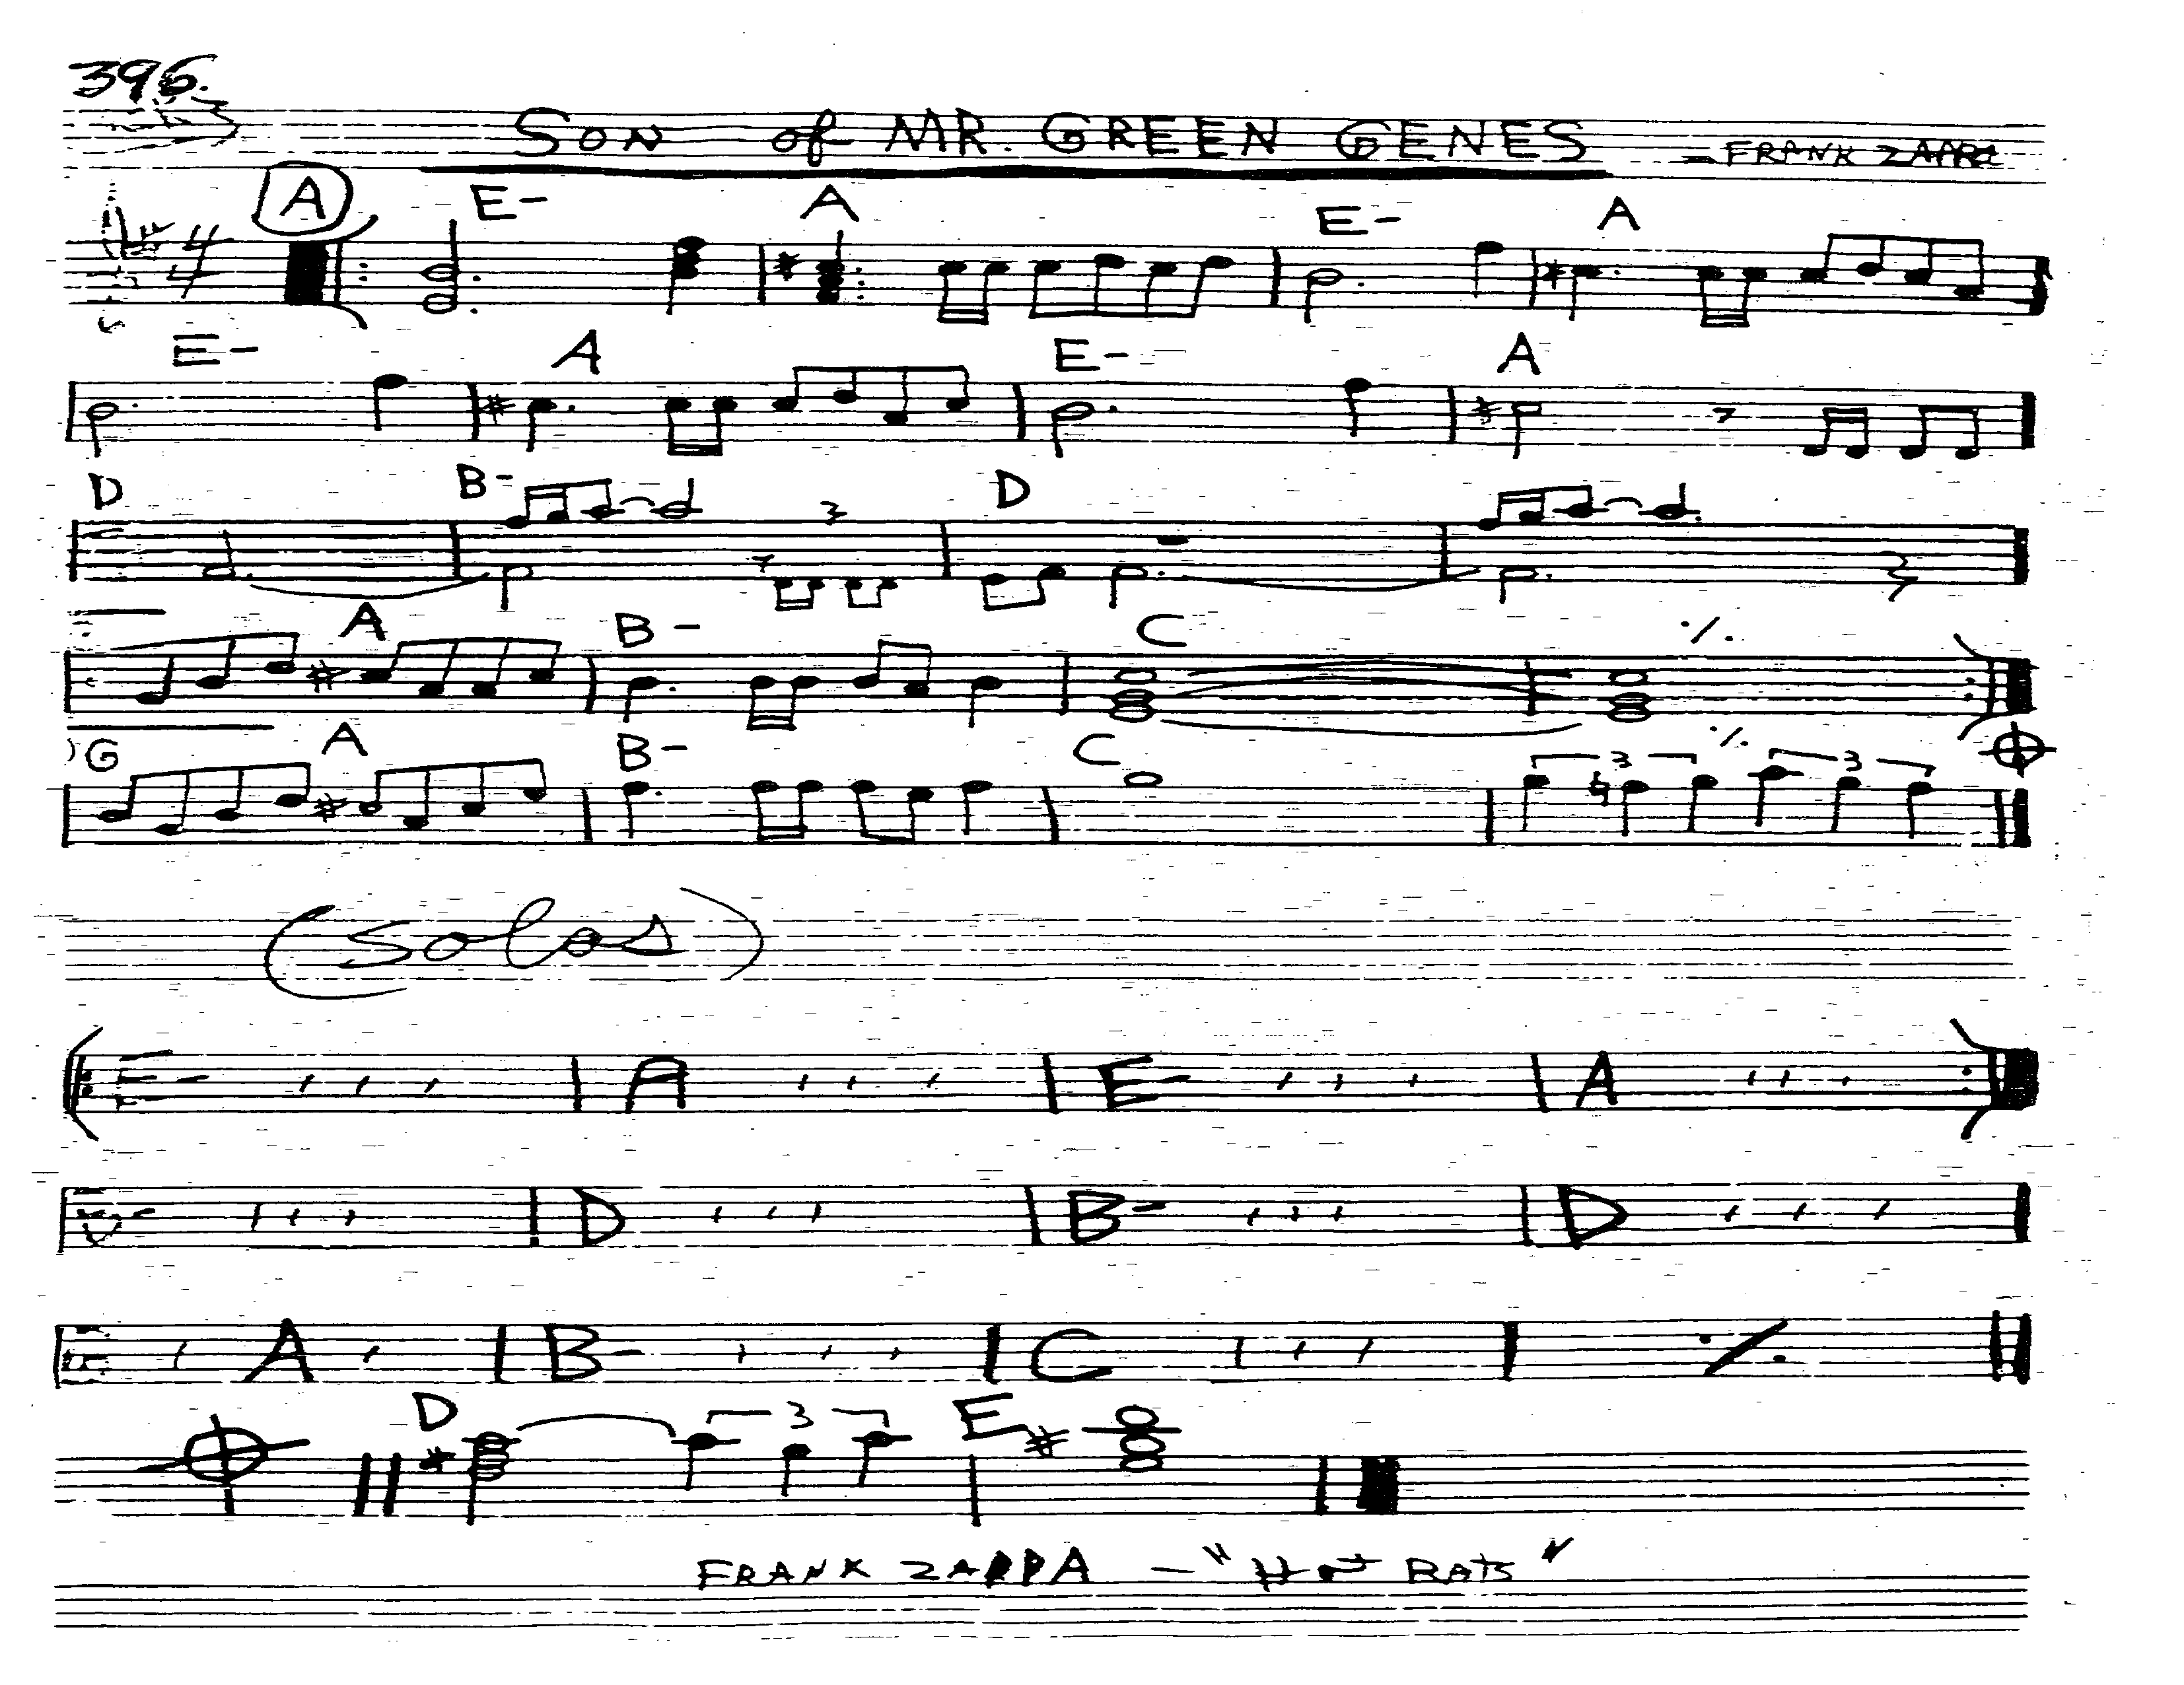 396.
SON of MR. GREEN GENES — FRANK ZAPPA
A E- A E- A
4
4
E- A E- A
D B- D
A B- C ٪
G A B- C ٪
3 3
(solos)
- A E- A
- D B- D
A B- C ٪
D 3 E
FRANK ZAPPA — "HOT RATS"